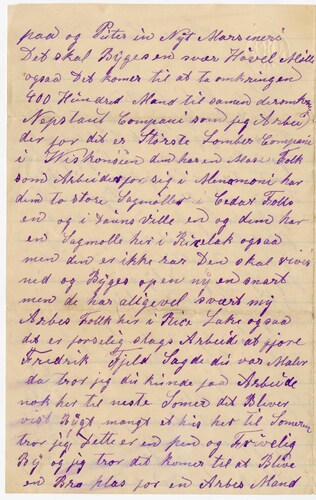 paa og Puter in Nyt Marsineri
Det skal Bÿges en svær Hövel Mölle
ogsaa Det komer til at ta omkringen
400 Hundred Mand til samen deromkr
Nepstaut Companie som jeg Arbei
der for dit er Störste Lomber Companie
i Wiskonsien dem har en Mase Folk
som Arbeider for sig i Menomoni har
dem to store Sagmöller i Cedar Folds
en og i Dauns Ville en og dem har
en Sagmolle her i Ricelak ogsaa
men den er ikke rar Den skal rivis
nid og Bÿges op en nÿ en snart
men de har aligevel svært mÿ
Arbes Follk her i Rice Lake ogsaa
dit er forselig slags Arbeid at gjore
Fredrik Fjeld Sagde dis var Maler
da tror jeg dis kunde faa Arbeide
nok her til neste Somer dit Bliver
vist Bÿgt mangt et his her til Someren
tror jeg Dette er en pen og trivelig
Bÿ og jeg tror dit komer til at Blive
en Bra plas for en Arbes Mand